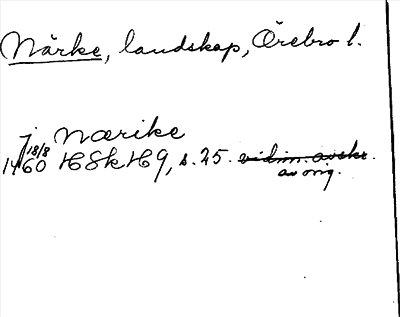 Närke, landskap, Örebro l.
j Nærike
18/8
1460 HSkH 9, s. 25. vidim. avskr.
av orig.